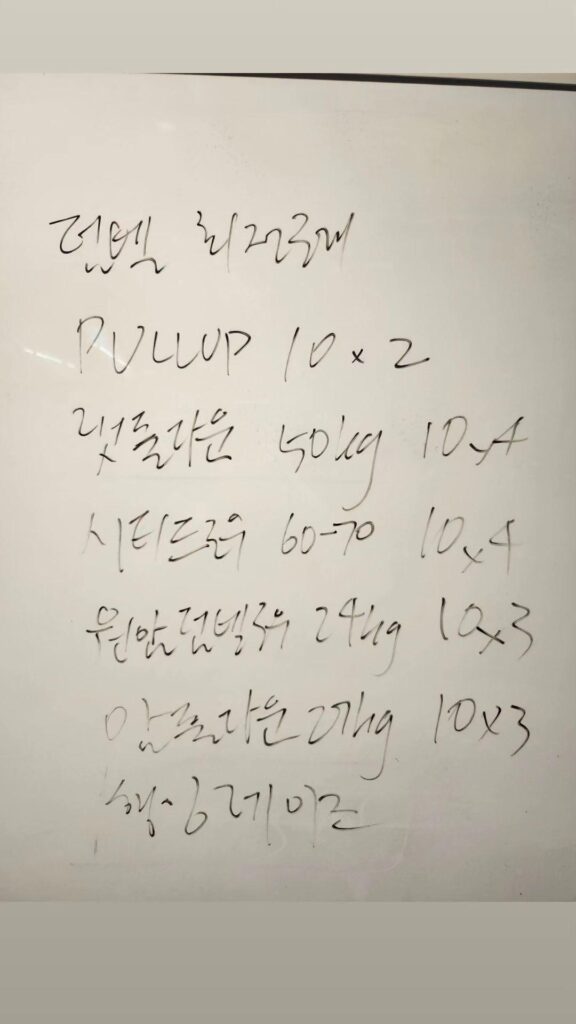 덤벨 회전근개
PULLUP 10 x 2
랫풀다운 50kg 10x4
시티드로우 60-70 10x4
원암덤벨로우 24kg 10x3
암풀다운 27kg 10x3
행잉레이즈